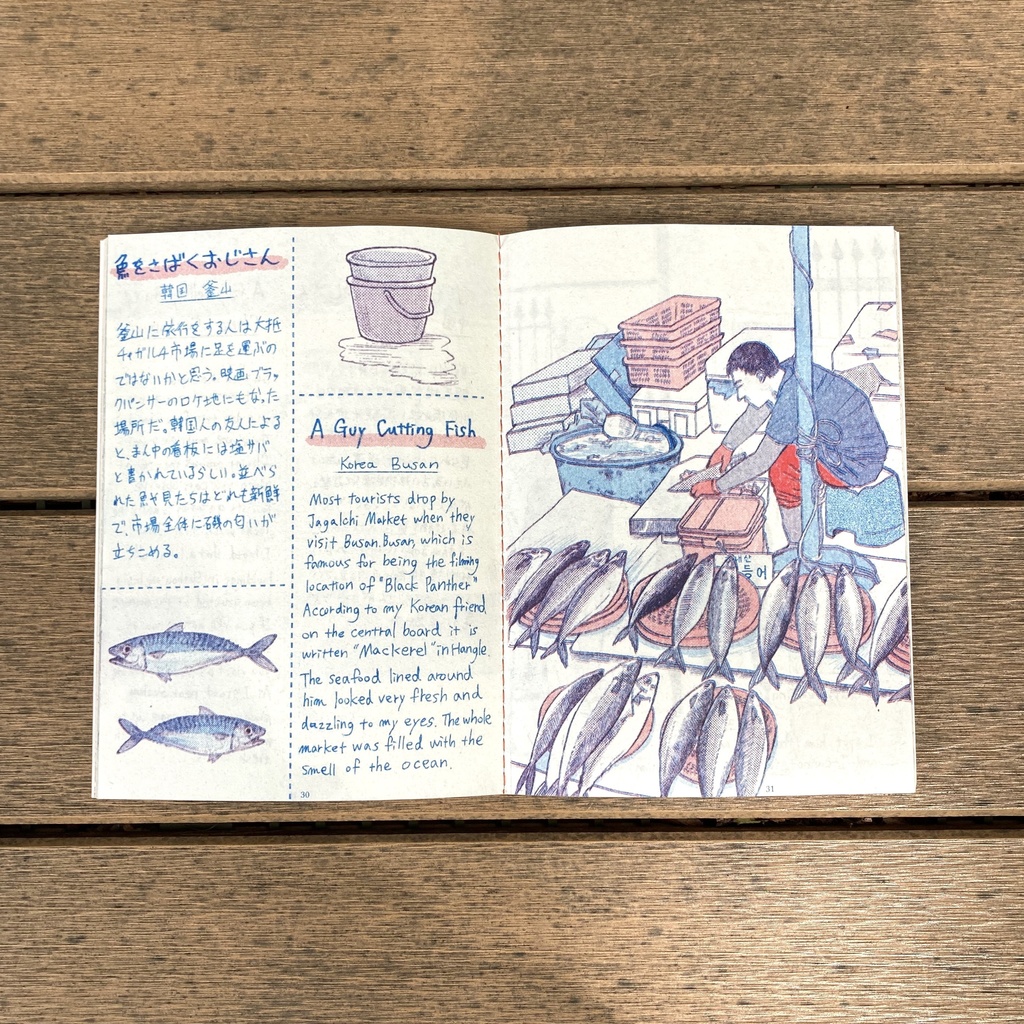 魚をさばくおじさん
韓国 釜山
釜山に旅行をする人は大抵
チャガルチ市場に足を運ぶの
ではないかと思う。映画ブラッ
クパンサーのロケ地にもなった
場所だ。韓国人の友人によよ
と、まん中の看板には塩サバ
と書かれているらしい。並べら
れた魚や貝たちはどれも新鮮
で、市場全体に磯の匂いが
立ちこめる。
A Guy Cutting Fish
Korea Busan
Most tourists drop by
Jagalchi Market when they
visit Busan.Busan, which is
famous for being the filming
location of "Black Panther"
According to my Korean friend
on the central board it is
written "Mackerel" in Hangle.
The seafood lined around
him looked very fresh and
dazzling to my eyes. The whole
market was filled with the
smell of the ocean.
30
31